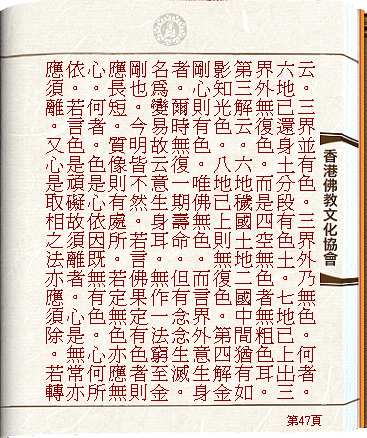 云。三界並有色。三界外乃無色。何者。
六地已還身土分段有色土。七地已上出三
界外無復色。而是四空無色者無粗色耳。
第三解云。六地穢國土地二國中間猶有如
影知光色。八地已上則無復色。第四解金
剛心則有色。唯佛無色。而言界外意生身
者。爾時無復一期壽命。但有念念生滅。
名爲變易故云意生身耳。無作一法窮至金
剛也。今明皆不然。若言佛果定有色者則
應長短。質像則有處所。若定無色亦應無
心。何者。色是心依因既無有色。心何所
依。若言色是頑礙故須離者。心是無常亦
應須離。又心是取相之法亦應須除。若轉
香港佛教文化協會
第47頁